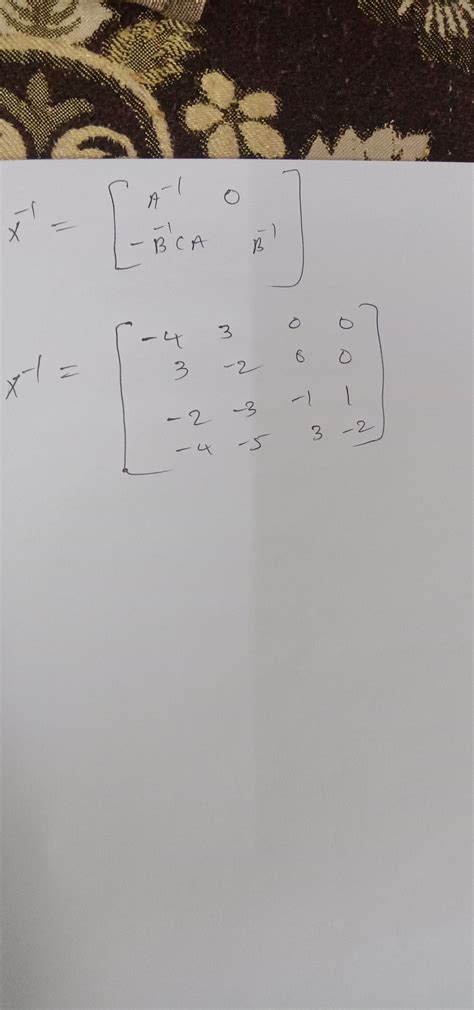 x⁻¹ = [ A⁻¹ 0
-B⁻¹CA B⁻¹ ]
x⁻¹ = [ -4 3 0 0
3 -2 0 0
-2 -3 -1 1
-4 -5 3 -2 ]